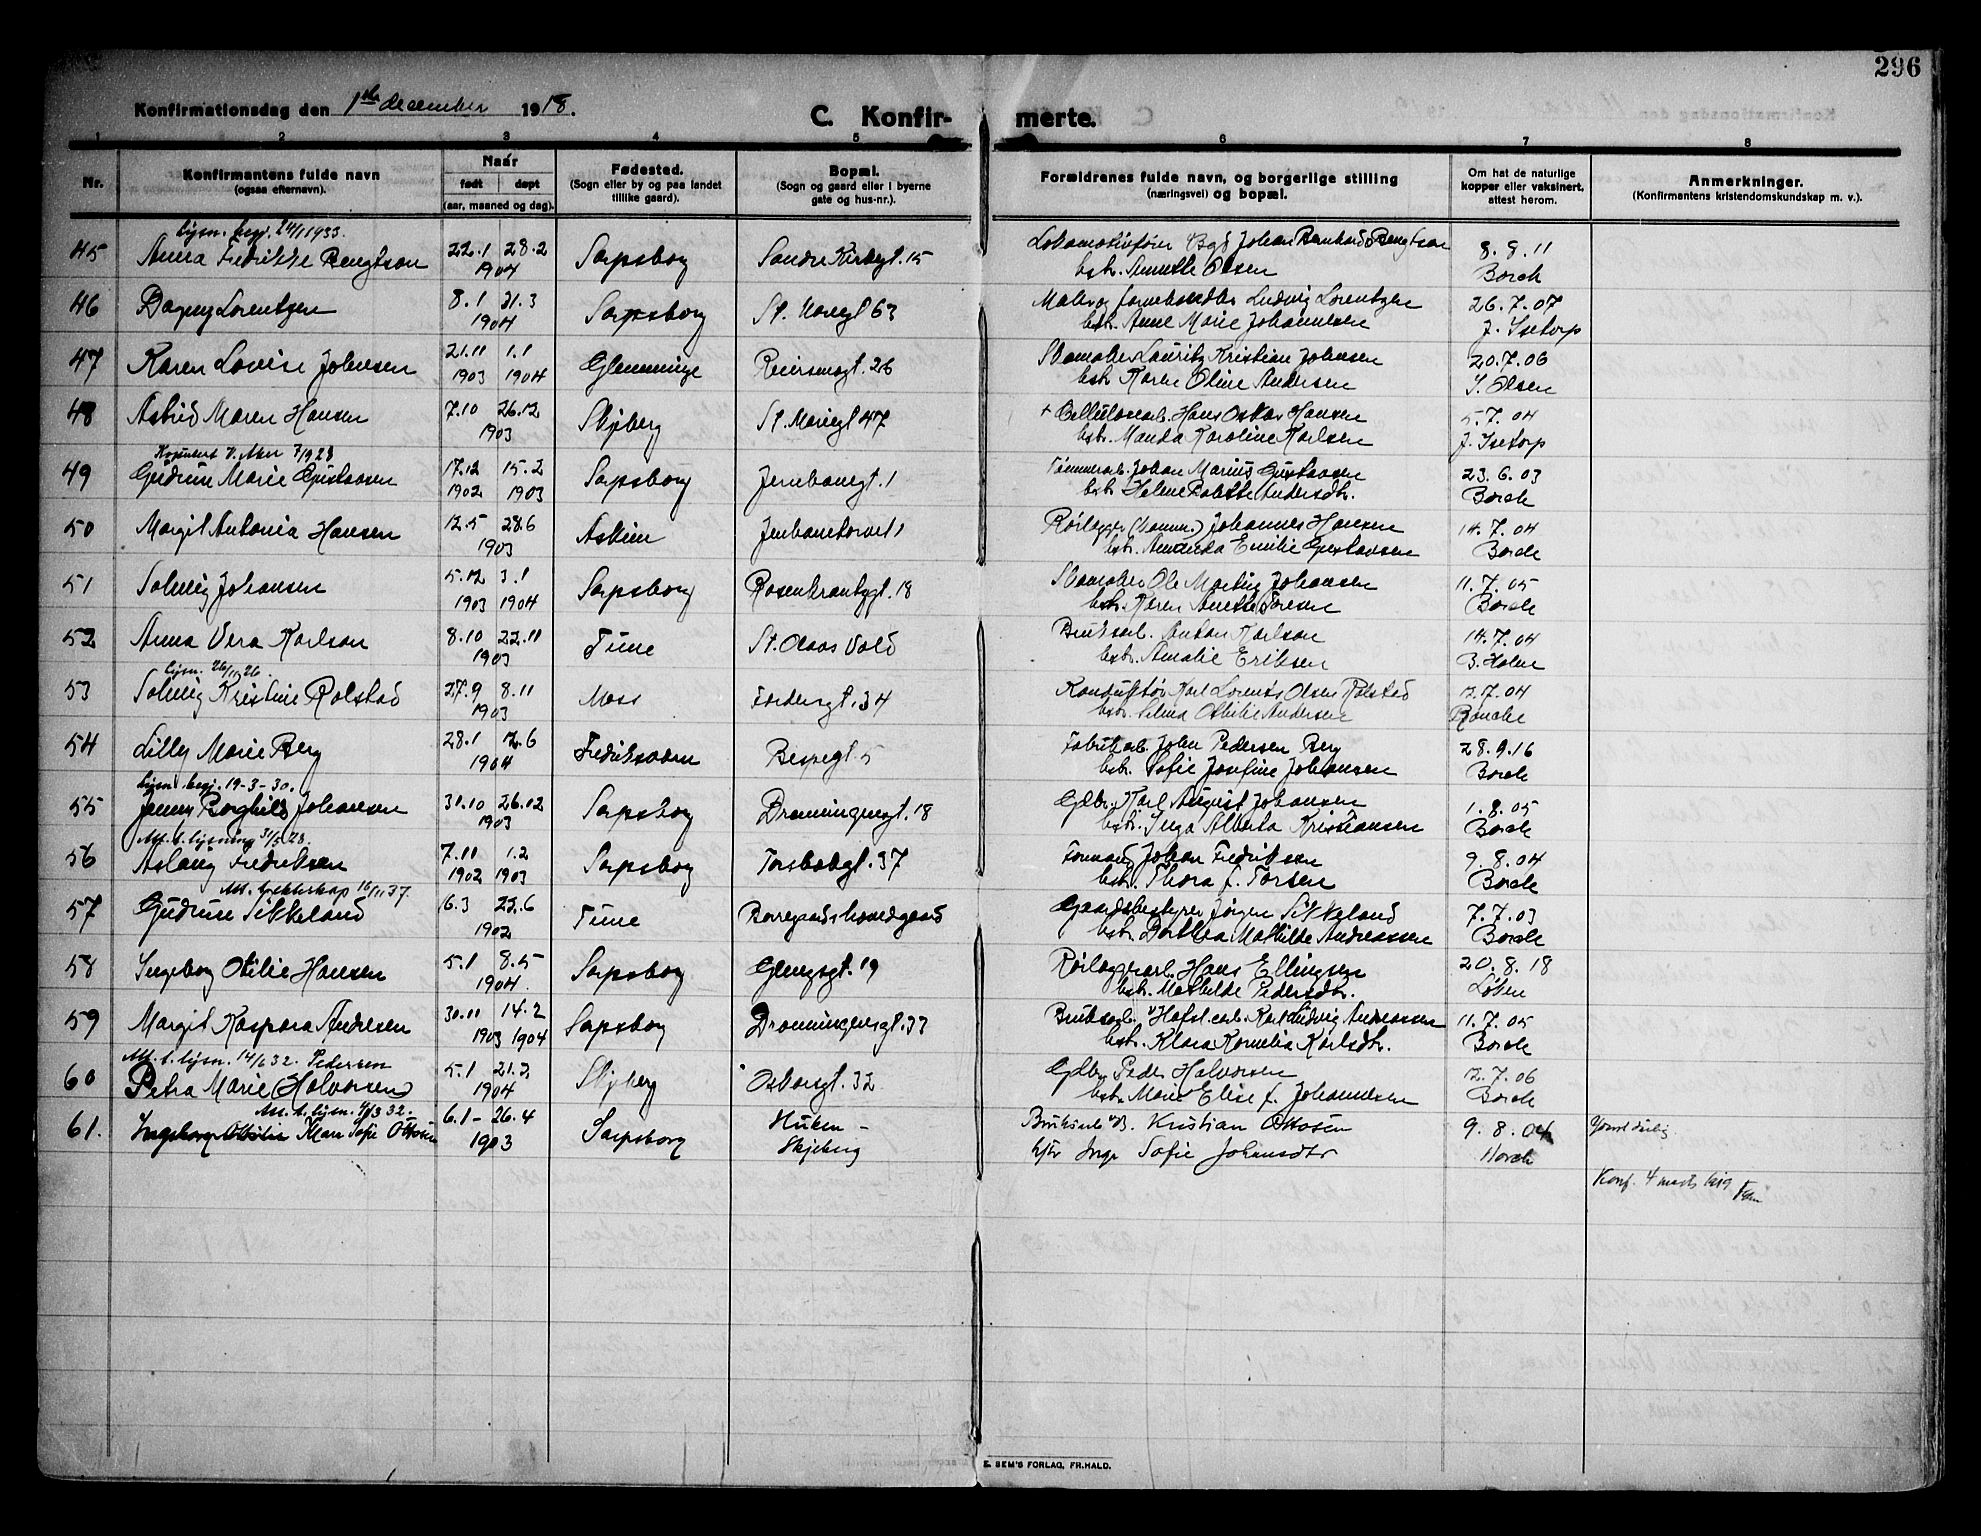 296
Konfirmationsdag den 1ste december 1918.
C. Konfir- merte.
1 2 3 4 5 6 7 8
Nr.
Konfirmantens fulde navn
(ogsaa efternavn).
Naar
født døpt
(aar, maaned og dag).
Fødested.
(Sogn eller by og paa landet
tillike gaard).
Bopæl.
(Sogn og gaard eller i byerne
gate og hus-nr.).
Forældrenes fulde navn, og borgerlige stilling
(næringsvei) og bopæl.
Om hat de naturlige
kopper eller vaksinert,
attest herom.
Anmerkninger.
(Konfirmantens kristendomskundskap m. v.).
lysn. begj. 24/1 1933.
45 Anna Fredrikke Bengtson 22.1 28.2 Sarpsborg Søndre Kirkegt. 15 Lokomotivfører Johan Bernhard Bengtson 8.8.11
1904 hstr. Annette Olsen Borch
46 Dagny Lorentzen 8.1 21.3 Sarpsborg St. Mariegt 63 Maler og farvehandler Ludvig Lorentzen 26.7.07
1904 hstr. Anne Marie Johannesen J. Isetorp
47 Karen Lovise Johansen 21.11 1.1 Glemminge Reiersøngt. 26 Skomaker Lauritz Kristian Johansen 20.7.06
1903 1904 hstr. Karen Oline Andersen S. Olsen
48 Astrid Maren Hansen 7.10 26.12 Skjeberg St. Mariegt 47 + Cellulosearb. Hans Oskar Hansen 5.7.04
1903 hstr. Manda Karoline Karlsen J. Isetorp
V. Aker 7/9 28
49 Gudrun Marie Gustavsen 17.12 15.2 Sarpsborg Jernbanegt. 1 Tømmerarb. Johan Marius Gustavsen 23.6.03
1902 1903 hstr. Helene Bolette Andersdtr. Borch
50 Margit Antonia Hansen 12.5 28.6 Askim Jernbanetorvet 1 Rørlægger (komm.) Johannes Hansen 14.7.04
1903 hstr. Amanda Emilie Gustavsen Borch
51 Solveig Johansen 5.12 3.1 Sarpsborg Rosenkrantzgt. 18 Skomaker Ole Martin Johansen 11.7.05
1903 1904 hstr. Karen Anette Toresen Borch
52 Anna Vera Karlson 8.10 22.11 Tune St. Olavs Vold Bruksarb. Anton Karlson 14.7.04
1903 hstr. Amalie Eriksen B. Holm
lysn. 26/11 26
53 Solveig Kristine Rolstad 27.9 8.11 Moss 34 Konduktør Karl Lorents Olsen Rolstad 12.7.04
1903 hstr. Selma Othilie Andersen
54 Lilly Marie Berg 28.1 12.6 Fredriksværn 5 Fabrikarb. John Pedersen Berg 28.9.16
1904 hstr. Sofie Josefine Johansen Borch
lysn. begj. 19-3-30.
55 Jenny Borghild Johansen 31.10 26.12 Sarpsborg Dronningensgt. 18 Gdbr. Karl August Johansen 1.8.05
1903 hstr. Inga Alberta Kristiansen Borch
Att. t. lysning 31/5 28.
56 Aslaug Fredriksen 7.11 1.2 Sarpsborg Torsbækgt. 37 Formand Johan Fredriksen 9.8.04
1902 1903 hstr. Thora f. Torsen Borch
Att. t. ekteskap 16/11 37.
57 Gudrun Sikkeland 16.3 22.6 Tune Borregaards hovedgaard Gaardsbestyrer Jørgen Sikkeland 7.7.03
1902 hstr. Dorthea Mathilde Andreassen Borch
58 Ingeborg Otilie Hansen 5.1 8.5 Sarpsborg Glengsgt. 19 Rørlæggerarb. Hans Ellingsen 20.8.18
1904. hstr. Mathilde Pedersdtr. Løken
59 Margit Kaspara Andresen 30.11 14.2 Sarpsborg Dronningensgt. 33 Bruksarb. Karl Ludvig Andreassen 11.7.05
1903 1904 hstr. Klara Kornelia Karlsdtr. Borch
Att. t. lysn. 14/6 32. Pedersen
60 Petra Marie Halvorsen 5.1 21.2 Skjeberg Oscarsgt. 32 Gdbr. Peder Halvorsen 12.7.06
1904 hstr. Marie Elise f. Johannesen Borch
Att. t. lysn. 4/3 32.
61. Klara Sofie Ottosen 6.1- 26.4 Sarpsborg Huken - Bruksarb Kristian Ottosen 9.8.04
1903 Skjeberg hstr Inga Sofie Johansdtr
Konf. 4 marts 1919
E. SEM'S FORLAG, FR.HALD.